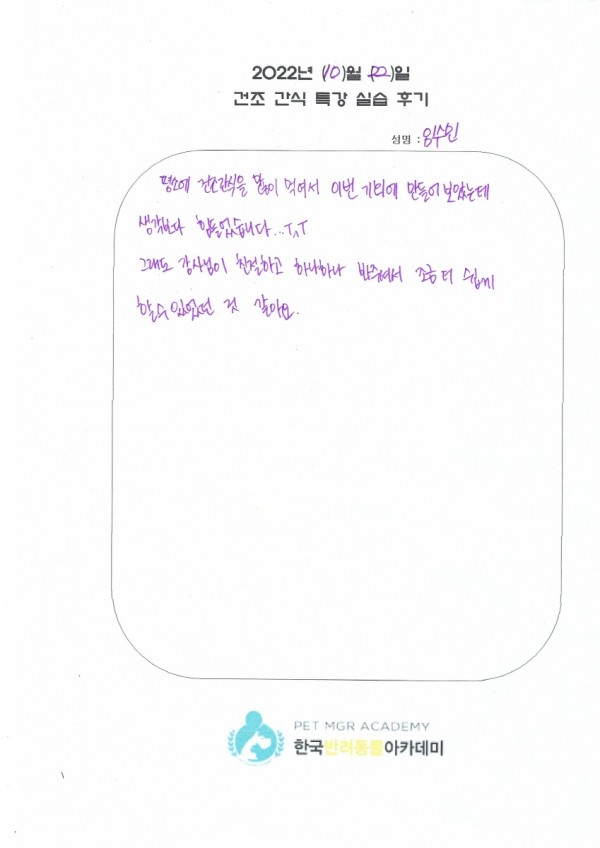 2022년 (10)월 (22)일
건조 간식 특강 실습 후기
성명 : 임수인
평소에 건조간식을 많이 먹여서 이번 기회에 만들어 보았는데
생각보다 힘들었습니다...T^T
그래도 강사님이 친절하고 하나하나 봐주셔서 조금 더 쉽게
할 수 있었던 것 같아요.
PET MGR ACADEMY
한국반려동물아카데미